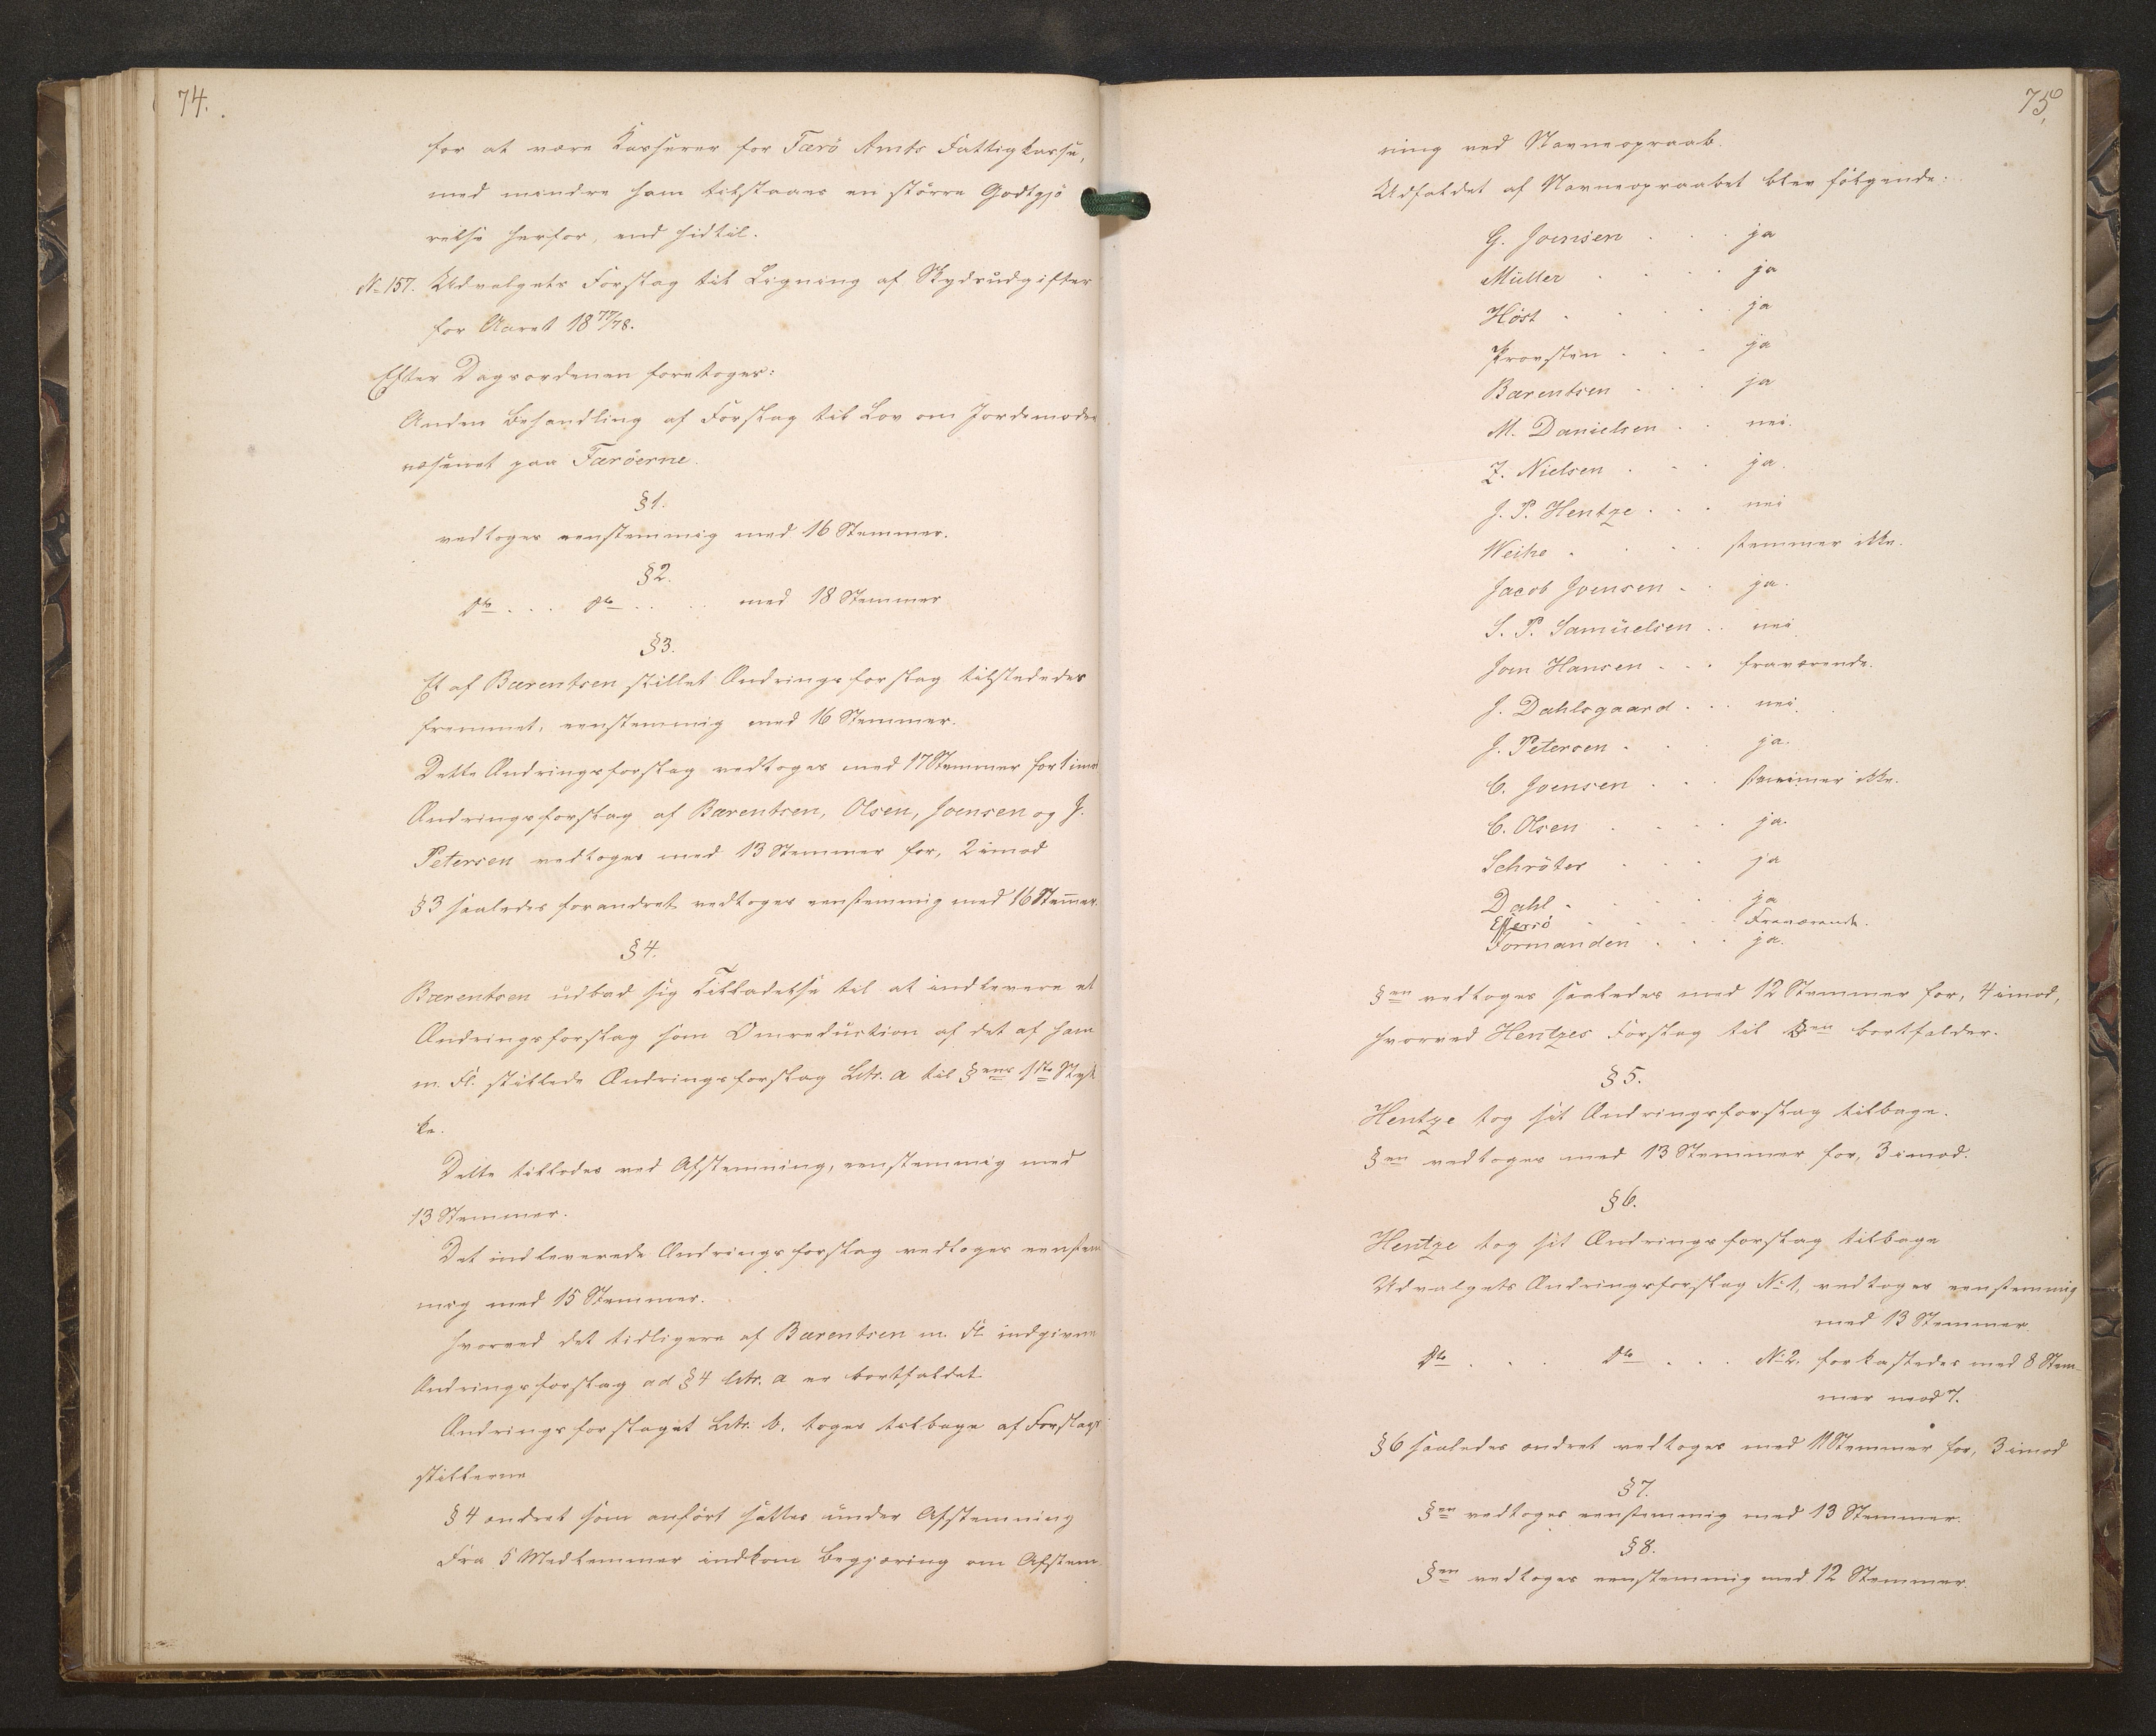 74.
for at være Kasserer for Færö Amts Fattigkasse,
med mindre ham tilstaaes en större Godtgjö
relse herfor, end hidtil.
No 157. Udvalgets Forslag til Ligning af Skydsudgifter
for Aaret 18 77/78.
Efter Dagsordenen foretoges:
Anden Behandling af Forslag til Lov om Jordemoder
væsenet paa Færöerne.
§1.
vedtoges eenstemmig med 16 Stemmer.
§2.
Dto . . . Dto . . . . med 18 Stemmer
§3.
Et af Bærentsen stillet Ændringsforslag tilstededes
fremmet, eenstemmig med 16 Stemmer.
Dette Ændringsforslag vedtoges med 17 Stemmer for 1 imod
Ændringsforslag af Bærentsen, Olsen, Joensen og J.
Petersen vedtoges med 13 Stemmer for, 2 imod
§3 saaledes forandret vedtoges eenstemmig med 16 Stem̅er.
§4.
Bærentsen udbad sig Tilladelse til at indlevere et
Ændringsforslag som Omreduction af det af ham
m. Fl. stillede Ændringsforslag Litr. a til §ens 1ste Styk
ke.
Dette tillodes ved Afstemning, eenstemmig med
13 Stemmer.
Det indleverede Ændringsforslag vedtoges eenstem
mig med 15 Stemmer.
hvorved det tidligere af Bærentsen m. Fl. indgivne
Ændringsforslag ad §4 litr. a er bortfaldet.
Ændringsforslaget Litr. b. toges tilbage af Forslags
stillerne
§4 ændret som anfört sattes under Afstemning
Fra 5 Medlemmer indkom Begjæring om Afstem
75,
ning ved Navneopraab.
Udfaldet af Navneopraabet blev fölgende:
G. Joensen . . . ja
Müller . . . . ja
Höst . . . . ja
Provsten . . . ja
Bærentsen . . . ja
M. Danielsen . . nei.
Z. Nielsen . . . ja.
J. P. Hentze . . . nei
Weihe . . . . stemmer ikke.
Jacob Joensen . . ja.
S. P. Samuelsen . . nei
Joen Hansen . . . fraværende.
J. Dahlsgaard . . . nei.
J. Petersen . . . ja.
C. Joensen . . . stemmer ikke.
C. Olsen . . . . ja.
Schröter . . . ja
Dahl . . . . ja
Effersö . . . . Fraværende.
Formanden . . . ja.
§en vedtoges saaledes med 12 Stemmer for, 4 imod,
hvorved Hentzes Forslag til §en bortfalder.
§5.
Hentze tog sit Ændringsforslag tilbage.
§en vedtoges med 13 Stemmer for, 3 imod.
§6.
Hentze tog sit Ændringsforslag tilbage
Udvalgets Ændringsforslag No 1, vedtoges eenstemmig
med 13 Stemmer.
Dto . . . Dto . . . No 2. forkastedes med 8 Stem
mer mod 7.
§6 saaledes ændret vedtoges med 11 Stemmer for, 3 imod
§7.
§en vedtoges eenstemmig med 13 Stemmer.
§8.
§en vedtoges eenstemmig med 12 Stemmer.